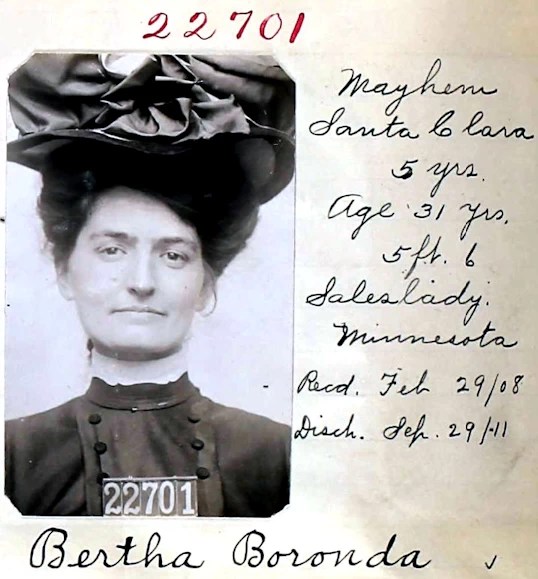 22701
Mayhem
Santa Clara
5 yrs.
Age 31 yrs.
5ft. 6
Saleslady.
Minnesota
Recd. Feb 29/08
Disch. Sep. 29/11
22701
Bertha Boronda ✓